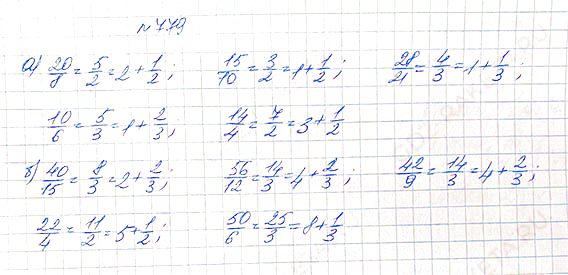 №779
а) 20/8 = 5/2 = 2 + 1/2; 15/70 = 3/2 = 1 + 1/2; 28/21 = 4/3 = 1 + 1/3;
10/6 = 5/3 = 1 + 2/3; 14/4 = 7/2 = 3 + 1/2
б) 40/15 = 8/3 = 2 + 2/3; 56/12 = 14/3 = 4 + 2/3; 42/9 = 14/3 = 4 + 2/3;
22/4 = 11/2 = 5 + 1/2; 50/6 = 25/3 = 8 + 1/3